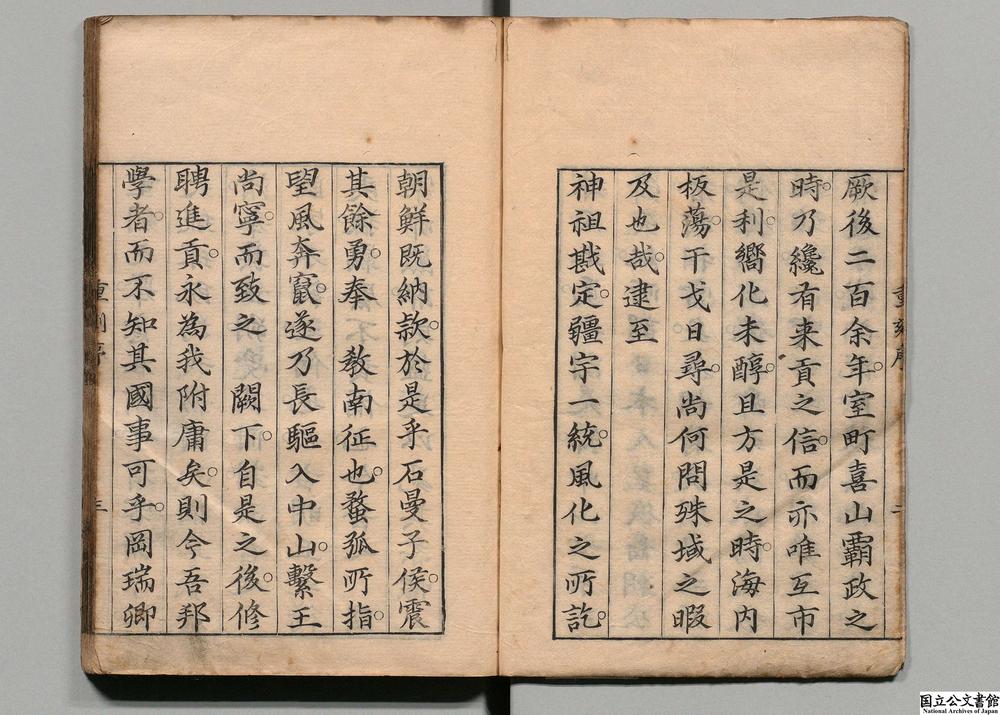 厥後二百余年。室町喜山霸政之
時。乃纔有来貢之信。而亦唯互市
是利。嚮化未醇。且方是之時。海内
板蕩。干戈日尋。尚何問殊域之暇
及也哉。逮至
神祖戡定。疆宇一統。風化之所訖。
朝鮮既納款。於是乎石曼子侯。震
其餘勇。奉 教南征也。蝥弧所指。
望風奔竄。遂乃長驅入中山。繫王
尚寧。而致之 闕下。自是之後。修
聘進貢。永為我附庸矣。則今吾邦
學者。而不知其國事可乎。岡瑞卿
重刻序
二
重刻序
三
国立公文書館
National Archives of Japan